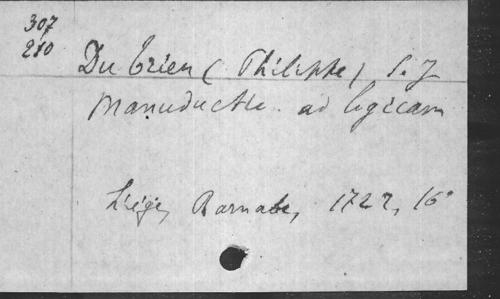 307
210
Du Trieu (Philippe) S.J
Manuductio ad logicam
Liége, Barnabe, 1727, 16°